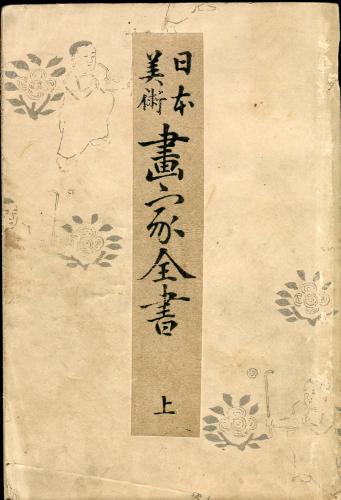 日本
美術
畫家全書
上